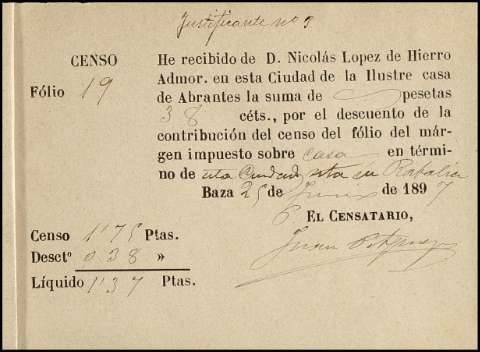 Justificante nº 3
CENSO
Fólio 19
He recibido de D. Nicolás Lopez de Hierro
Admor. en esta Ciudad de la Ilustre casa
de Abrantes la suma de pesetas
38 céts., por el descuento de la
contribución del censo del fólio del már-
gen impuesto sobre casa en térmi-
no de esta Ciudad, sita en
Baza 25 de Junio de 1897
P. EL CENSATARIO,
Juan
Censo 1'75 Ptas.
Desctº 0'38 »
Líquido 1'37 Ptas.